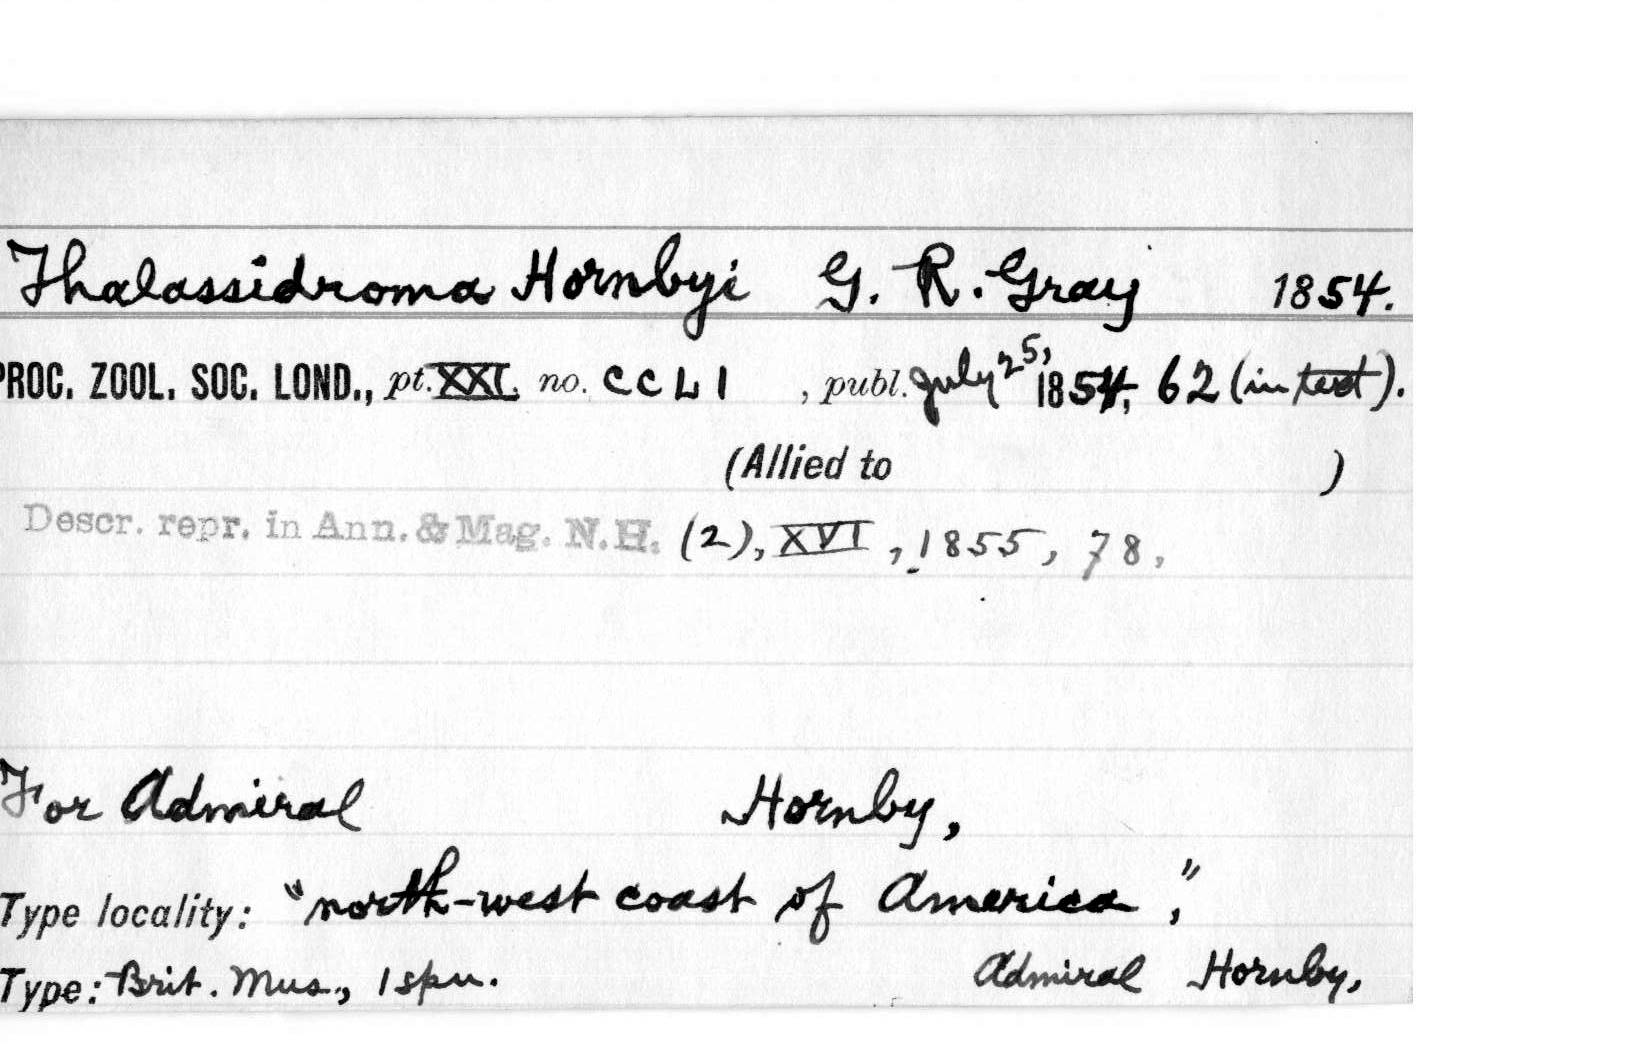 Thalassidroma Hornbyi G. R. Gray 1854.
PROC. ZOOL. SOC. LOND., pt. XXI. no. CCLI , publ. July 25, 1854, 62 (in text).
(Allied to )
Descr. repr. in Ann. & Mag. N.H. (2), XVI, 1855, 78,
For Admiral Hornby,
Type locality: "north-west coast of America",
Type: Brit. Mus., 1 spm. Admiral Hornby,